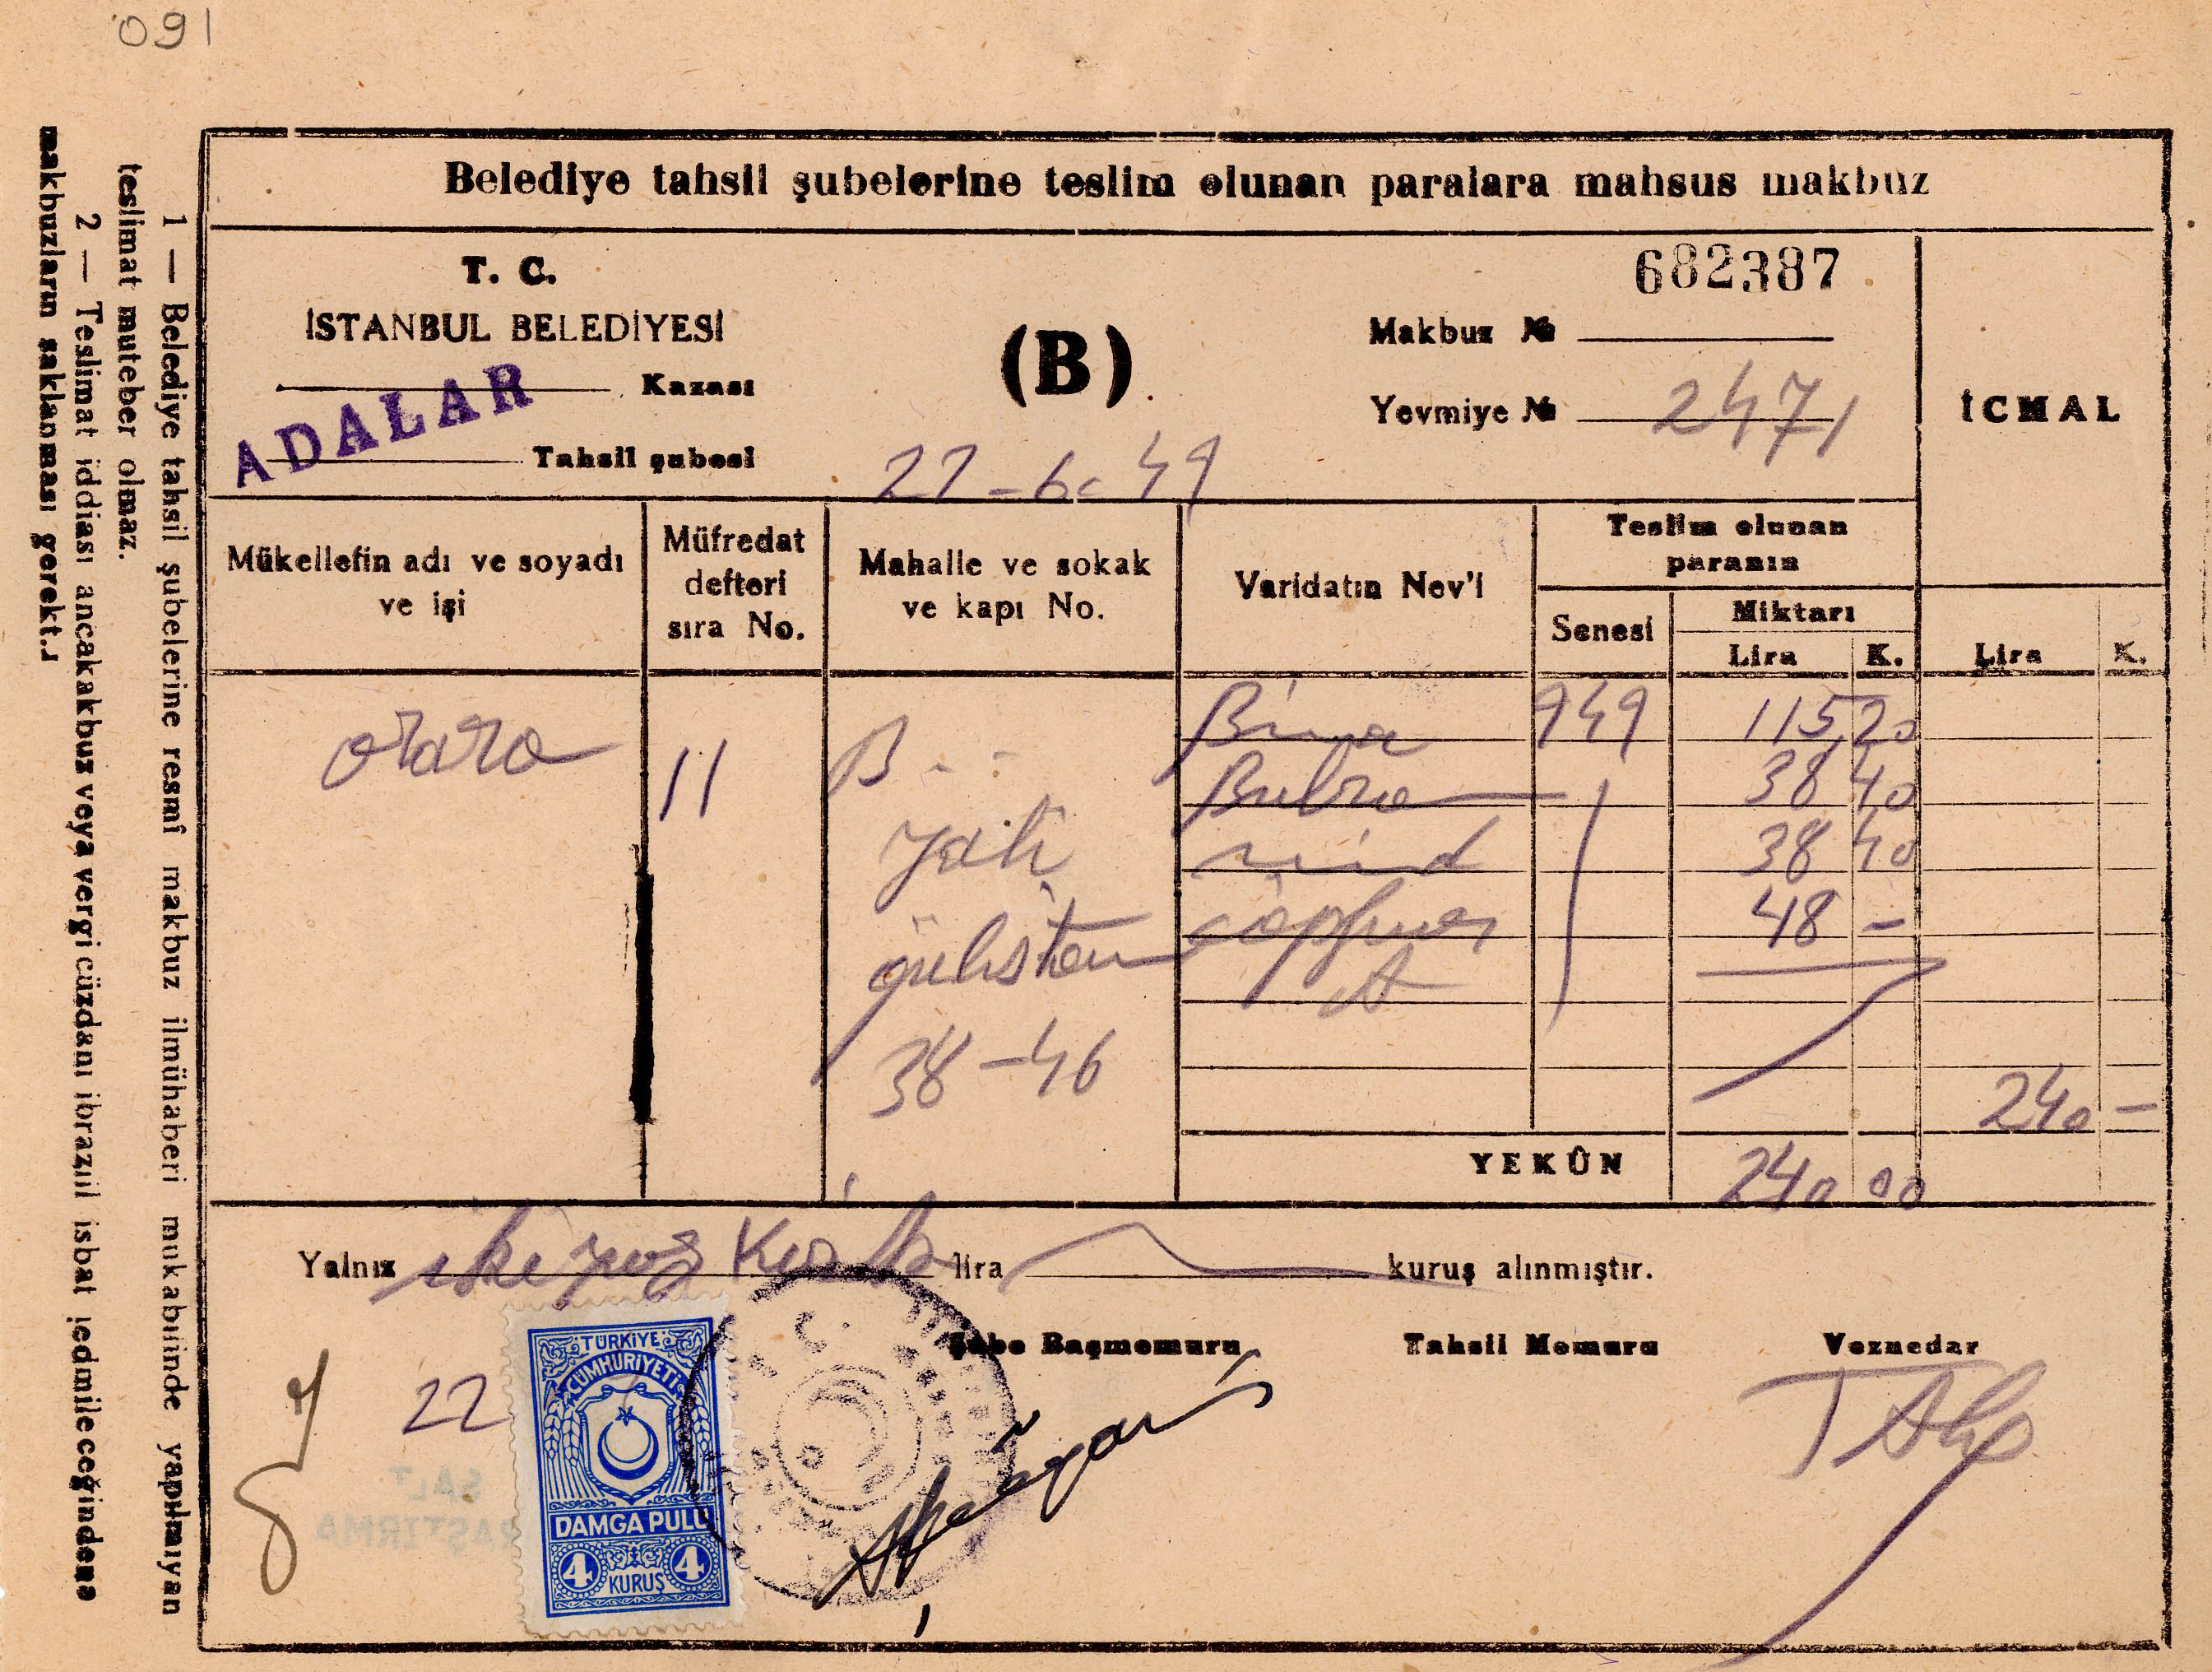 091
Belediye tahsil şubelerine teslim olunan paralara mahsus makbuz
T. C.
İSTANBUL BELEDİYESİ
Kazası
ADALAR
Tahsil şubesi
(B)
22-6-49
682387
Makbuz №
Yevmiye № 2471
İCMAL
Mükellefin adı ve soyadı ve işi
Müfredat defteri sıra No.
Mahalle ve sokak ve kapı No.
Varidatın Nev'i
Teslim olunan paranın
Senesi
Miktarı
Lira K.
Lira K.
11
B. .
Yalı
gülistan
38-46
Bina 949 115 20
Buhran 38 40
38 40
48 -
240 -
YEKÛN 240 00
Yalnız iki yüz Kırk lira kuruş alınmıştır.
Şube Başmemuru
Tahsil Memuru
Veznedar
22
TÜRKİYE
CUMHURİYETİ
DAMGA PULU
4 KURUŞ 4
T. C.
SALT
ARAŞTIRMA
1 — Belediye tahsil şubelerine resmî makbuz ilmühaberi mukabilinde yapılmıyan
teslimat muteber olmaz.
2 — Teslimat iddiası ancakakbuz veya vergi cüzdanı ibrazıil isbat
makbuzların saklanması gerekt.ı